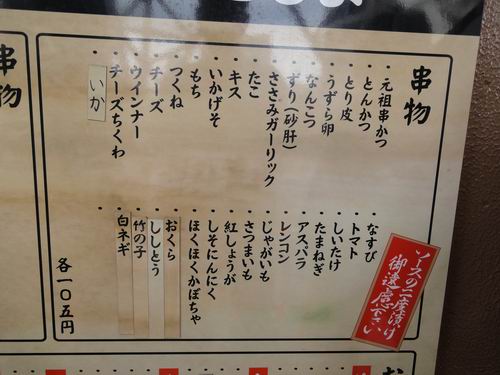 串物
・元祖串かつ
・とんかつ
・とり皮
・うずら卵
・なんこつ
・ずり(砂肝)
・ささみガーリック
・たこ
・キス
・いかげそ
・もち
・つくね
・チーズ
・ウインナー
・チーズちくわ
いか
・なすび
・トマト
・しいたけ
・たまねぎ
・アスパラ
・レンコン
・じゃがいも
・さつまいも
・紅しょうが
・しそにんにく
・ほくほくかぼちゃ
・おくら
・ししとう
・竹の子
・白ネギ
各一〇五円
ソースの二度漬け
御遠慮下さい
串物
お